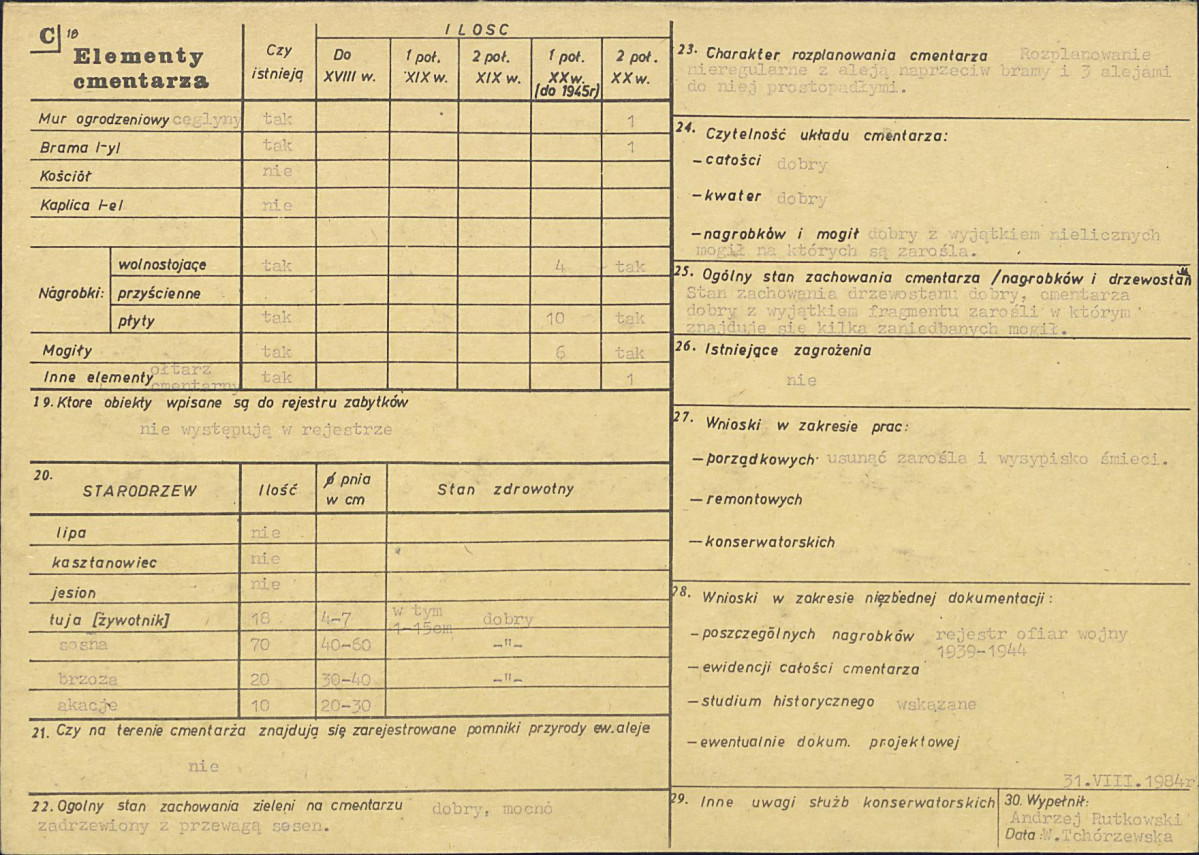 C 18
Elementy cmentarza
Czy istnieją
ILOSC
Do XVIII w.
1 poł. XIX w.
2 poł. XIX w.
1 poł. XX w. (do 1945r)
2 poł. XX w.
Mur ogrodzeniowy ceglyny tak 1
Brama I-yI tak 1
Kościół nie
Kaplica I-eI nie
Nagrobki: wolnostojące tak 4 tak
przyścienne
płyty tak 10 tak
Mogiły tak 6 tak
Inne elementy ołtarz cmentarny tak 1
19. Ktore obiekty wpisane są do rejestru zabytków
nie występują w rejestrze
20. STARODRZEW Ilość ø pnia w cm Stan zdrowotny
lipa nie
kasztanowiec nie
jesion nie
tuja [żywotnik] 18 4-7 w tym 1-15cm dobry
sosna 70 40-60 -"-
brzoza 20 30-40 -"-
akacje 10 20-30
21. Czy na terenie cmentarża znajdują się zarejestrowane pomniki przyrody ew. aleje
nie
22. Ogolny stan zachowania zieleni na cmentarzu dobry, mocnó
zadrzewiony z przewagą sosen.
23. Charakter rozplanowania cmentarza Rozplanowanie
nieregularne z aleją naprzeciw bramy i 3 alejami
do niej prostopadłymi.
24. Czytelność układu cmentarza:
- całości dobry
- kwater dobry
- nagrobków i mogił dobry z wyjątkiem nielicznych
mogił na których są zarośla.
25. Ogólny stan zachowania cmentarza /nagrobków i drzewostan
Stan zachowania drzewostanu dobry, cmentarza
dobry z wyjątkiem fragmentu zarośli w którym
znajduje się kilka zaniedbanych mogił.
26. Istniejące zagrożenia
nie
27. Wnioski w zakresie prac:
- porządkowych usunąć zarośla i wysypisko śmieci.
- remontowych
- konserwatorskich
28. Wnioski w zakresie niezbednej dokumentacji:
- poszczególnych nagrobków rejestr ofiar wojny
1939-1944
- ewidencji całości cmentarza
- studium historycznego wskązane
- ewentualnie dokum. projektowej
31.VIII.1984r.
29. Inne uwagi służb konserwatorskich
30. Wypełnił:
Andrzej Rutkowski
Data: W.Tchórzewska